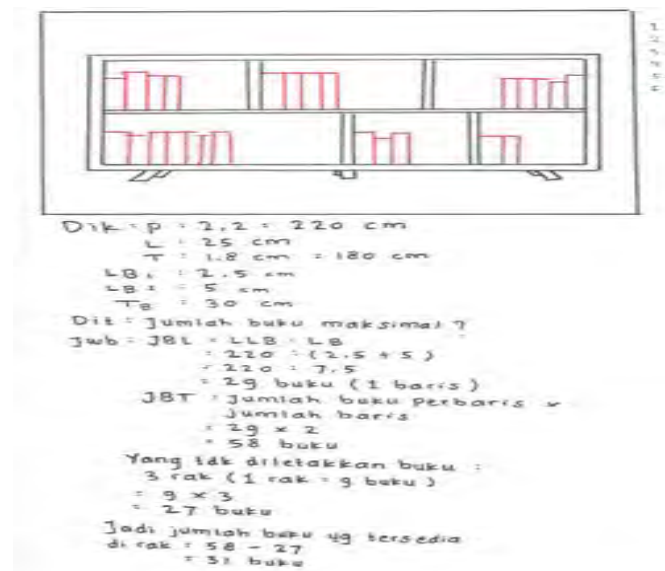 Dik : P : 2,2 = 220 cm
L : 25 cm
T : 1.8 cm = 180 cm
LB1 : 2.5 cm
LB2 = 5 cm
TB = 30 cm
Dit : Jumlah buku maksimal ?
Jwb : JBL = LLB : LB
= 220 : (2.5 + 5)
= 220 : 7.5
= 29 buku (1 baris)
JBT : Jumlah buku perbaris x
Jumlah baris
= 29 x 2
= 58 buku
Yang tdk diletakkan buku :
3 rak (1 rak = 9 buku)
= 9 x 3
= 27 buku
Jadi jumlah buku yg tersedia
di rak = 58 - 27
= 31 buku